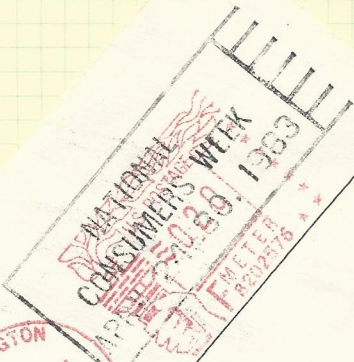 NATIONAL
CONSUMERS WEEK
1983
U.S. POSTAGE
0.20
METER
GTON